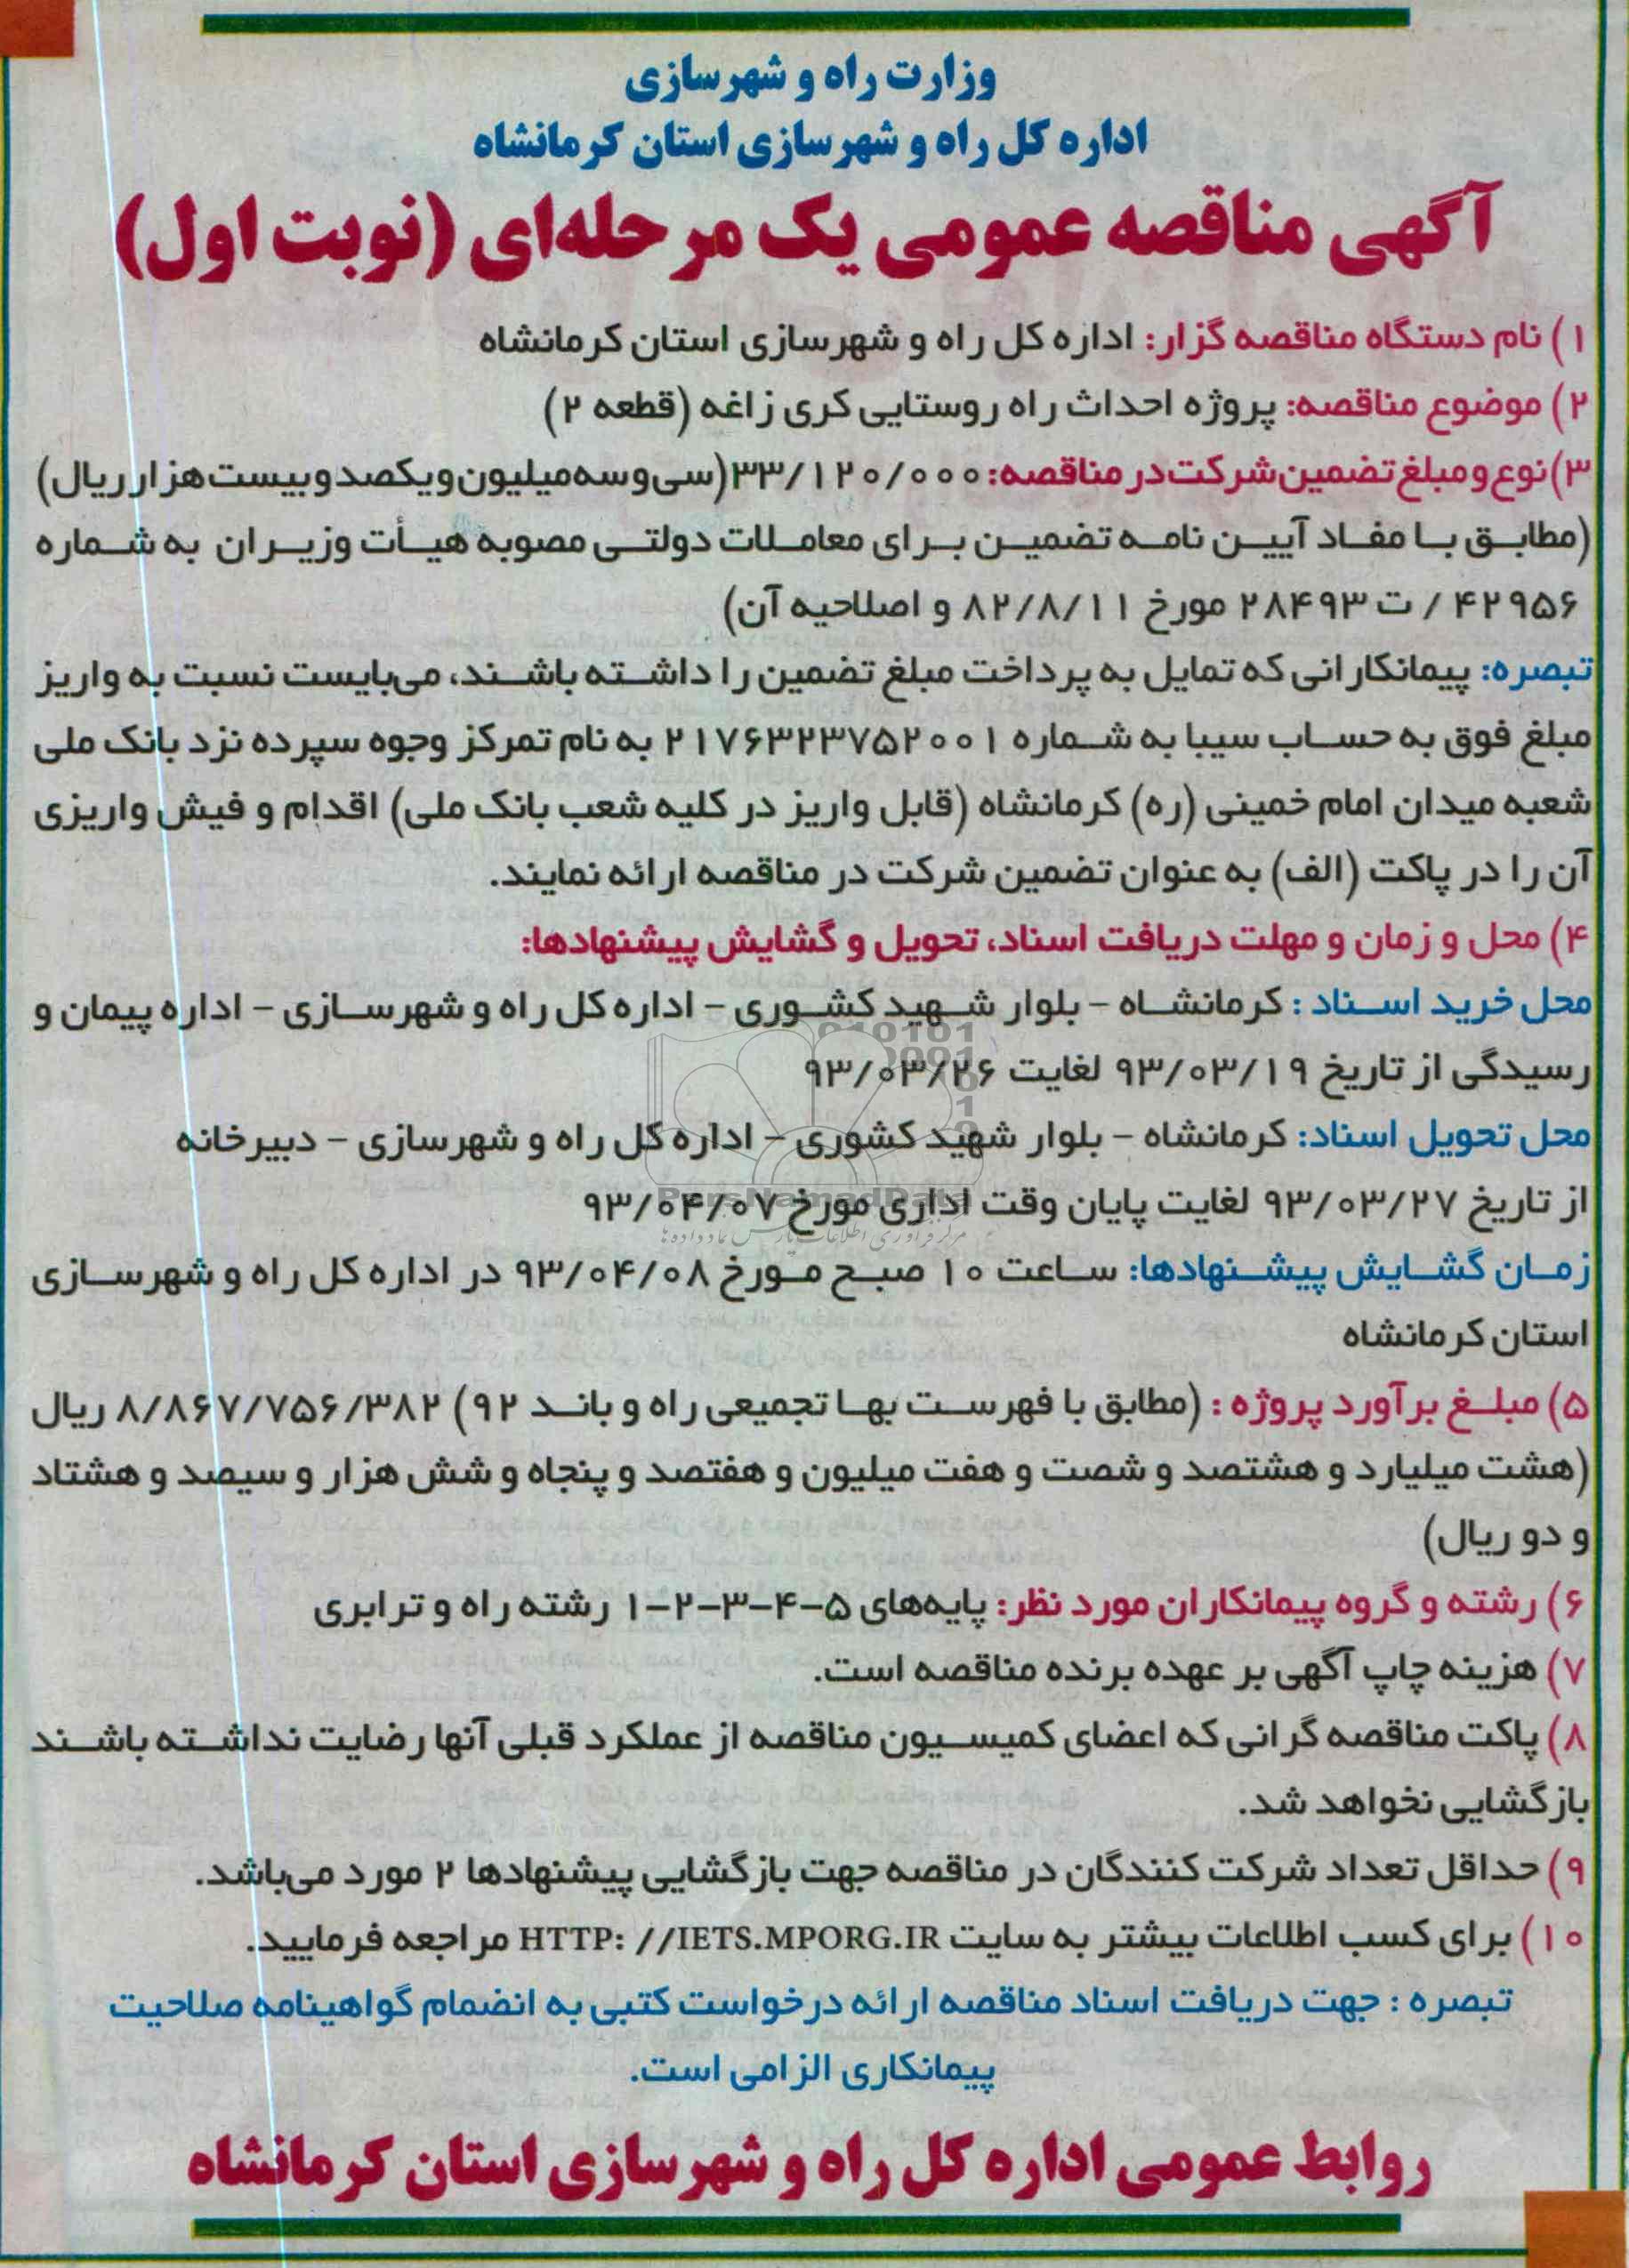 وزارت راه و شهرسازی
اداره کل راه و شهرسازی استان کرمانشاه
آگهی مناقصه عمومی یک مرحله‌ای (نوبت اول)
۱) نام دستگاه مناقصه گزار: اداره کل راه و شهرسازی استان کرمانشاه
۲) موضوع مناقصه: پروژه احداث راه روستایی کری زاغه (قطعه ۲)
۳) نوع و مبلغ تضمین شرکت در مناقصه: ۳۳/۱۲۰/۰۰۰ (سی و سه میلیون و یکصد و بیست هزار ریال)
(مطابق با مفاد آیین نامه تضمین برای معاملات دولتی مصوبه هیأت وزیران به شماره
۴۲۹۵۶ / ت ۲۸۴۹۳ مورخ ۸۲/۸/۱۱ و اصلاحیه آن)
تبصره: پیمانکارانی که تمایل به پرداخت مبلغ تضمین را داشته باشند، می‌بایست نسبت به واریز
مبلغ فوق به حساب سیبا به شماره ۲۱۷۶۳۲۳۷۵۲۰۰۱ به نام تمرکز وجوه سپرده نزد بانک ملی
شعبه میدان امام خمینی (ره) کرمانشاه (قابل واریز در کلیه شعب بانک ملی) اقدام و فیش واریزی
آن را در پاکت (الف) به عنوان تضمین شرکت در مناقصه ارائه نمایند.
۴) محل و زمان و مهلت دریافت اسناد، تحویل و گشایش پیشنهادها:
محل خرید اسناد : کرمانشاه – بلوار شهید کشوری – اداره کل راه و شهرسازی – اداره پیمان و
رسیدگی از تاریخ ۹۳/۰۳/۱۹ لغایت ۹۳/۰۳/۲۶
محل تحویل اسناد: کرمانشاه – بلوار شهید کشوری – اداره کل راه و شهرسازی – دبیرخانه
از تاریخ ۹۳/۰۳/۲۷ لغایت پایان وقت اداری مورخ ۹۳/۰۴/۰۷
ParsNamadData
مرکز فرآوری اطلاعات پارس نماد داده‌ها
زمان گشایش پیشنهادها: ساعت ۱۰ صبح مورخ ۹۳/۰۴/۰۸ در اداره کل راه و شهرسازی
استان کرمانشاه
۵) مبلغ برآورد پروژه : (مطابق با فهرست بها تجمیعی راه و باند ۹۲) ۸/۸۶۷/۷۵۶/۳۸۲ ریال
(هشت میلیارد و هشتصد و شصت و هفت میلیون و هفتصد و پنجاه و شش هزار و سیصد و هشتاد
و دو ریال)
۶) رشته و گروه پیمانکاران مورد نظر: پایه‌های ۵-۴-۳-۲-۱ رشته راه و ترابری
۷) هزینه چاپ آگهی بر عهده برنده مناقصه است.
۸) پاکت مناقصه گرانی که اعضای کمیسیون مناقصه از عملکرد قبلی آنها رضایت نداشته باشند
بازگشایی نخواهد شد.
۹) حداقل تعداد شرکت کنندگان در مناقصه جهت بازگشایی پیشنهادها ۲ مورد می‌باشد.
۱۰) برای کسب اطلاعات بیشتر به سایت HTTP: //IETS.MPORG.IR مراجعه فرمایید.
تبصره : جهت دریافت اسناد مناقصه ارائه درخواست کتبی به انضمام گواهینامه صلاحیت
پیمانکاری الزامی است.
روابط عمومی اداره کل راه و شهرسازی استان کرمانشاه